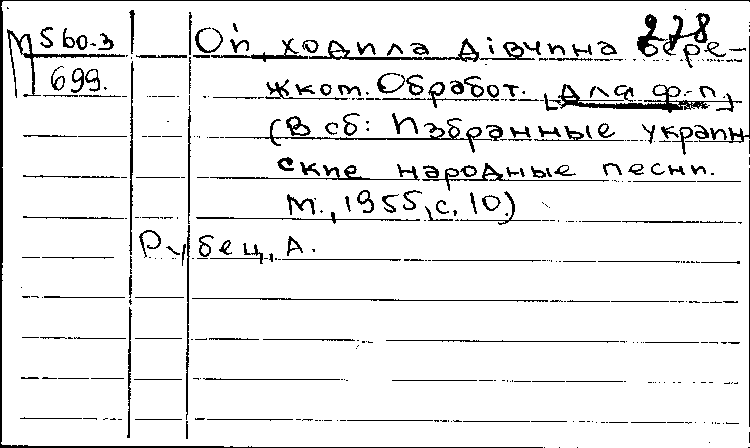 278
М 560-3
699.
Ой, ходила дівчина бере-
жком. Обработ. [для ф-п]
(В сб: Избранные украин-
ские народные песни.
М., 1955, с. 10.)
Рубец, А.